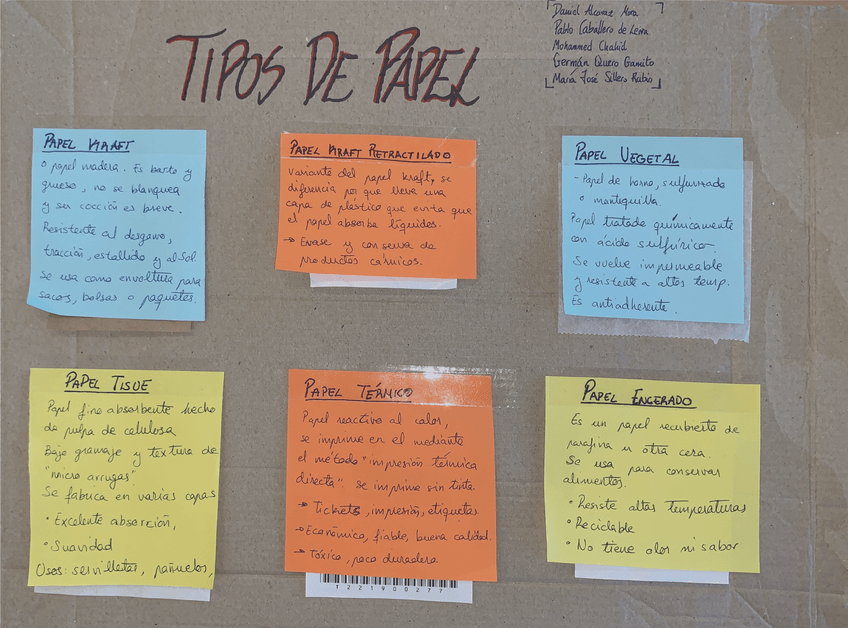 TIPOS DE PAPEL
Daniel Alcaraz Mora
Pablo Caballero de Leiva
Mohammed Chahid
Germán Quero Gamito
María José Sillero Rubio
PAPEL KRAFT
o papel madera. Es basto y
grueso, no se blanquea
y ser cocción es breve.
Resistente al desgarro,
tracción, estallido y al Sol
Se usa como envoltura para
sacos, bolsas o paquetes.
PAPEL KRAFT RETRACTILADO
Variante del papel kraft, se
diferencia por que lleva una
capa de plástico que evita que
el papel absorba líquidos.
→ Envase y conserva de
productos cárnicos.
PAPEL VEGETAL
- Papel de horno, sulfurizado
o mantequilla.
Papel tratado químicamente
con ácido sulfúrico.
Se vuelve impermeable
y resistente a altas temp.
Es antiadherente.
PAPEL TISUE
Papel fino absorbente hecho
de pulpa de celulosa
Bajo gramaje y textura de
"micro arrugas"
Se fabrica en varias capas
• Excelente absorción,
• Suavidad
Usos: servilletas, pañuelos,
PAPEL TÉRMICO
Papel reactivo al calor,
se imprime en el mediante
el método "impresión térmica
directa". se imprime sin tinta.
→ Tickets, impresión, etiquetas
→ Económico, fiable, buena calidad.
→ Tóxico, poco duradera.
7221900277
PAPEL ENCERADO
Es un papel recubierto de
parafina u otra cera.
Se usa para conservar
alimentos.
• Resiste altas temperaturas
• Reciclable
• No tiene olor ni sabor